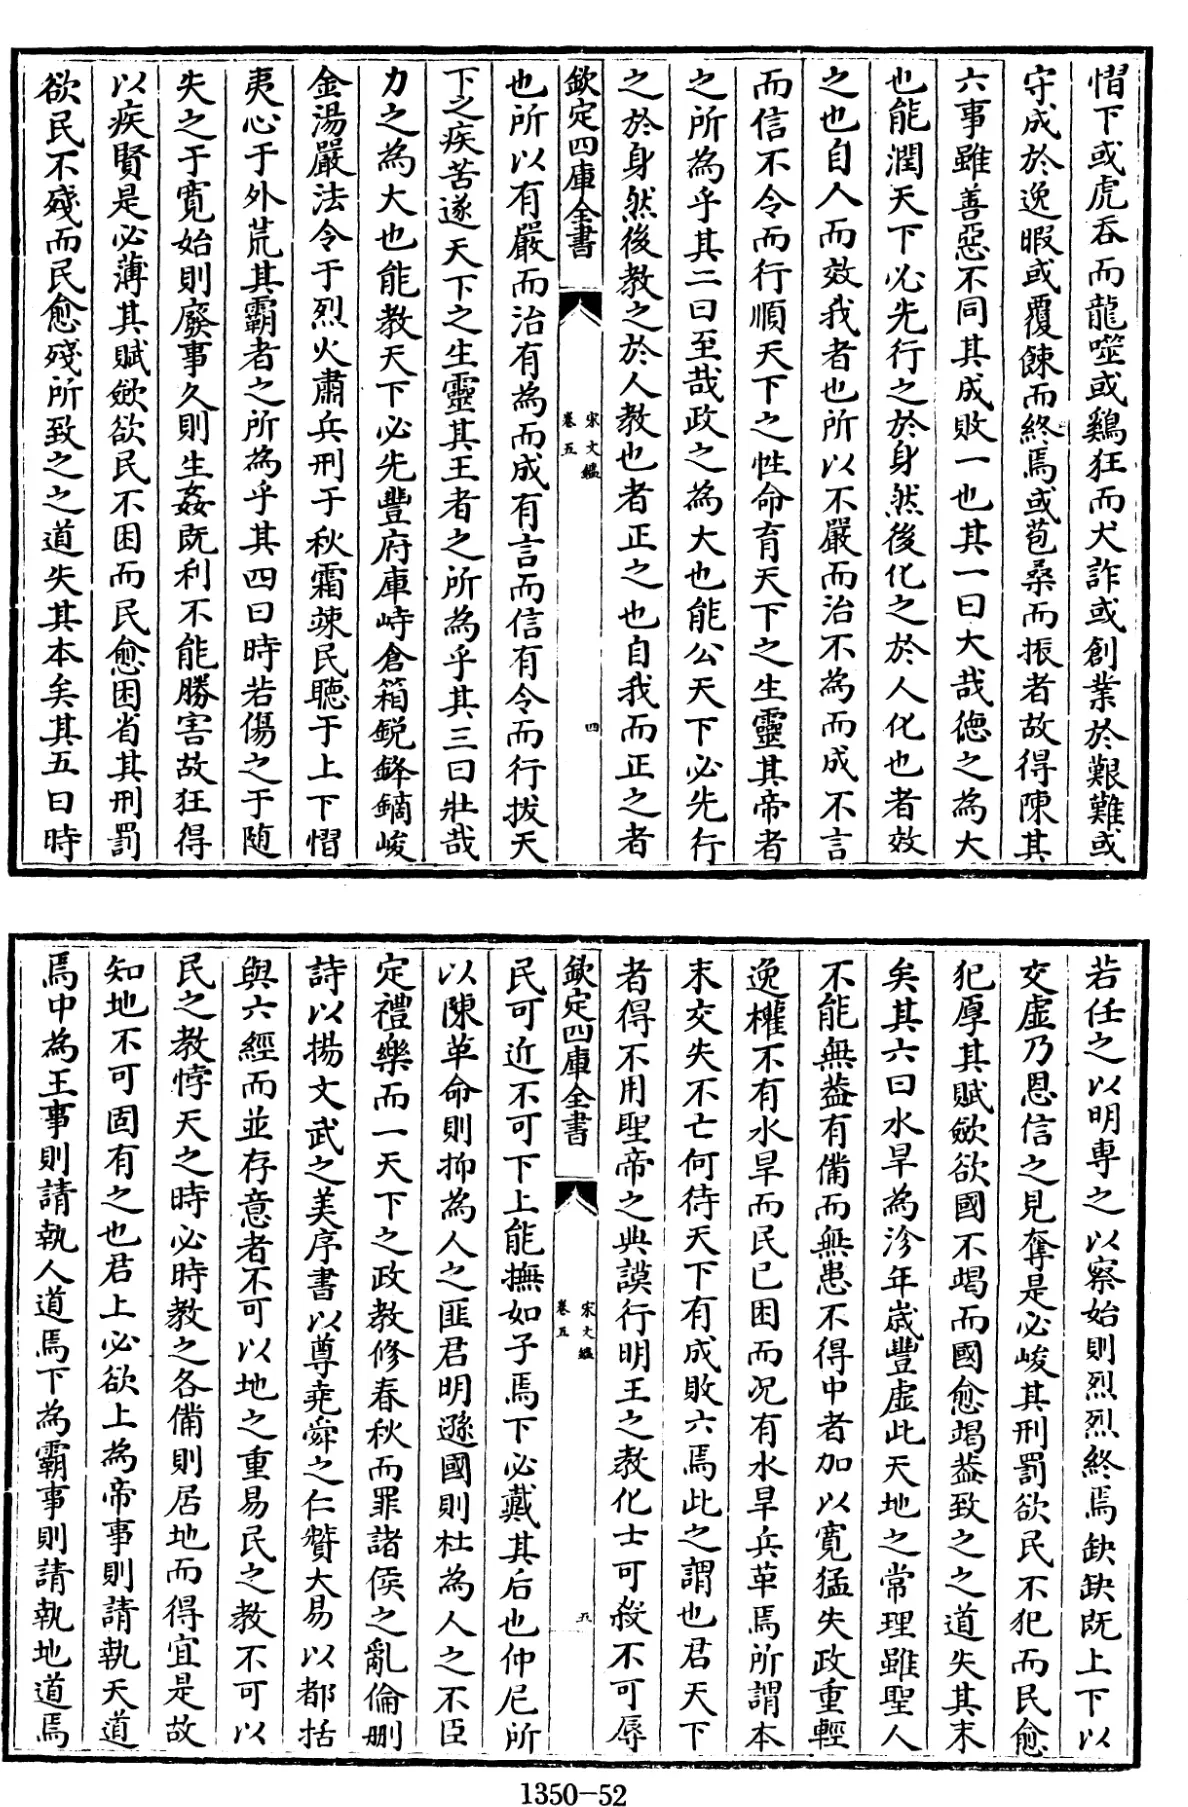 慴下或虎吞而龍噬或鷄狂而犬詐或創業於艱難或
守成於逸暇或覆餗而終焉或苞桑而振者故得陳其
六事雖善惡不同其成敗一也其一曰大哉德之為大
也能潤天下必先行之於身然後化之於人化也者效
之也自人而效我者也所以不嚴而治不為而成不言
而信不令而行順天下之性命育天下之生靈其帝者
之所為乎其二曰至哉政之為大也能公天下必先行
之於身然後教之於人教也者正之也自我而正之者
欽定四庫全書
宋文鑑
卷五
四
也所以有嚴而治有為而成有言而信有令而行拔天
下之疾苦遂天下之生靈其王者之所為乎其三曰壯哉
力之為大也能教天下必先豐府庫峙倉箱銳鋒鏑峻
金湯嚴法令于烈火肅兵刑于秋霜竦民聽于上下慴
夷心于外荒其霸者之所為乎其四曰時若傷之于随
失之于寛始則廢事久則生姦旣利不能勝害故狂得
以疾賢是必薄其賦斂欲民不困而民愈困省其刑罰
欲民不殘而民愈殘所致之之道失其本矣其五曰時
若任之以明専之以察始則烈烈終焉缺缺旣上下以
交虛乃恩信之見奪是必峻其刑罰欲民不犯而民愈
犯厚其賦斂欲國不竭而國愈竭葢致之之道失其末
矣其六曰水旱為沴年歲豐虛此天地之常理雖聖人
不能無葢有備而無患不得中者加以寛猛失政重輕
逸權不有水旱而民已困而况有水旱兵革焉所謂本
末交失不亡何待天下有成敗六焉此之謂也君天下
者得不用聖帝之典謨行明王之教化士可殺不可辱
欽定四庫全書
宋文鑑
卷五
五
民可近不可下上能撫如子焉下必戴其后也仲尼所
以陳革命則抑為人之匪君明遜國則杜為人之不臣
定禮樂而一天下之政教修春秋而罪諸侯之亂倫刪
詩以揚文武之美序書以尊堯舜之仁贊大易以都括
與六經而並存意者不可以地之重易民之教不可以
民之教悖天之時必時教之各備則居地而得宜是故
知地不可固有之也君上必欲上為帝事則請執天道
焉中為王事則請執人道焉下為霸事則請執地道焉
1350-52